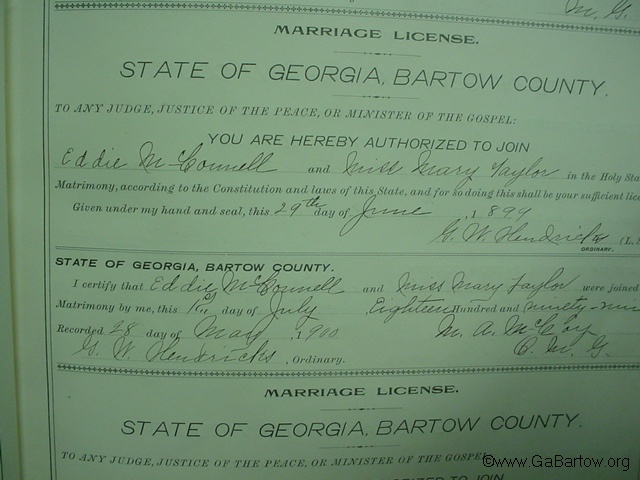 M. G.
MARRIAGE LICENSE.
STATE OF GEORGIA, BARTOW COUNTY.
TO ANY JUDGE, JUSTICE OF THE PEACE, OR MINISTER OF THE GOSPEL:
YOU ARE HEREBY AUTHORIZED TO JOIN
Eddie McConnell and Miss Mary Taylor in the Holy Sta
Matrimony, according to the Constitution and laws of this State, and for so doing this shall be your sufficient lice
Given under my hand and seal, this 29th day of June , 1899
G. W. Hendricks (L. S
ORDINARY.
STATE OF GEORGIA, BARTOW COUNTY.
I certify that Eddie McConnell and Miss Mary Taylor were joined
Matrimony by me, this 1st day of July Eighteen Hundred and ninety-nin
Recorded 28 day of May , 1900 M. A. McCoy
G. W. Hendricks , Ordinary. O. M. G.
MARRIAGE LICENSE.
STATE OF GEORGIA, BARTOW COUNTY.
TO ANY JUDGE, JUSTICE OF THE PEACE, OR MINISTER OF THE GOSPEL
©www.GaBartow.org
AUTHORIZED TO JOIN